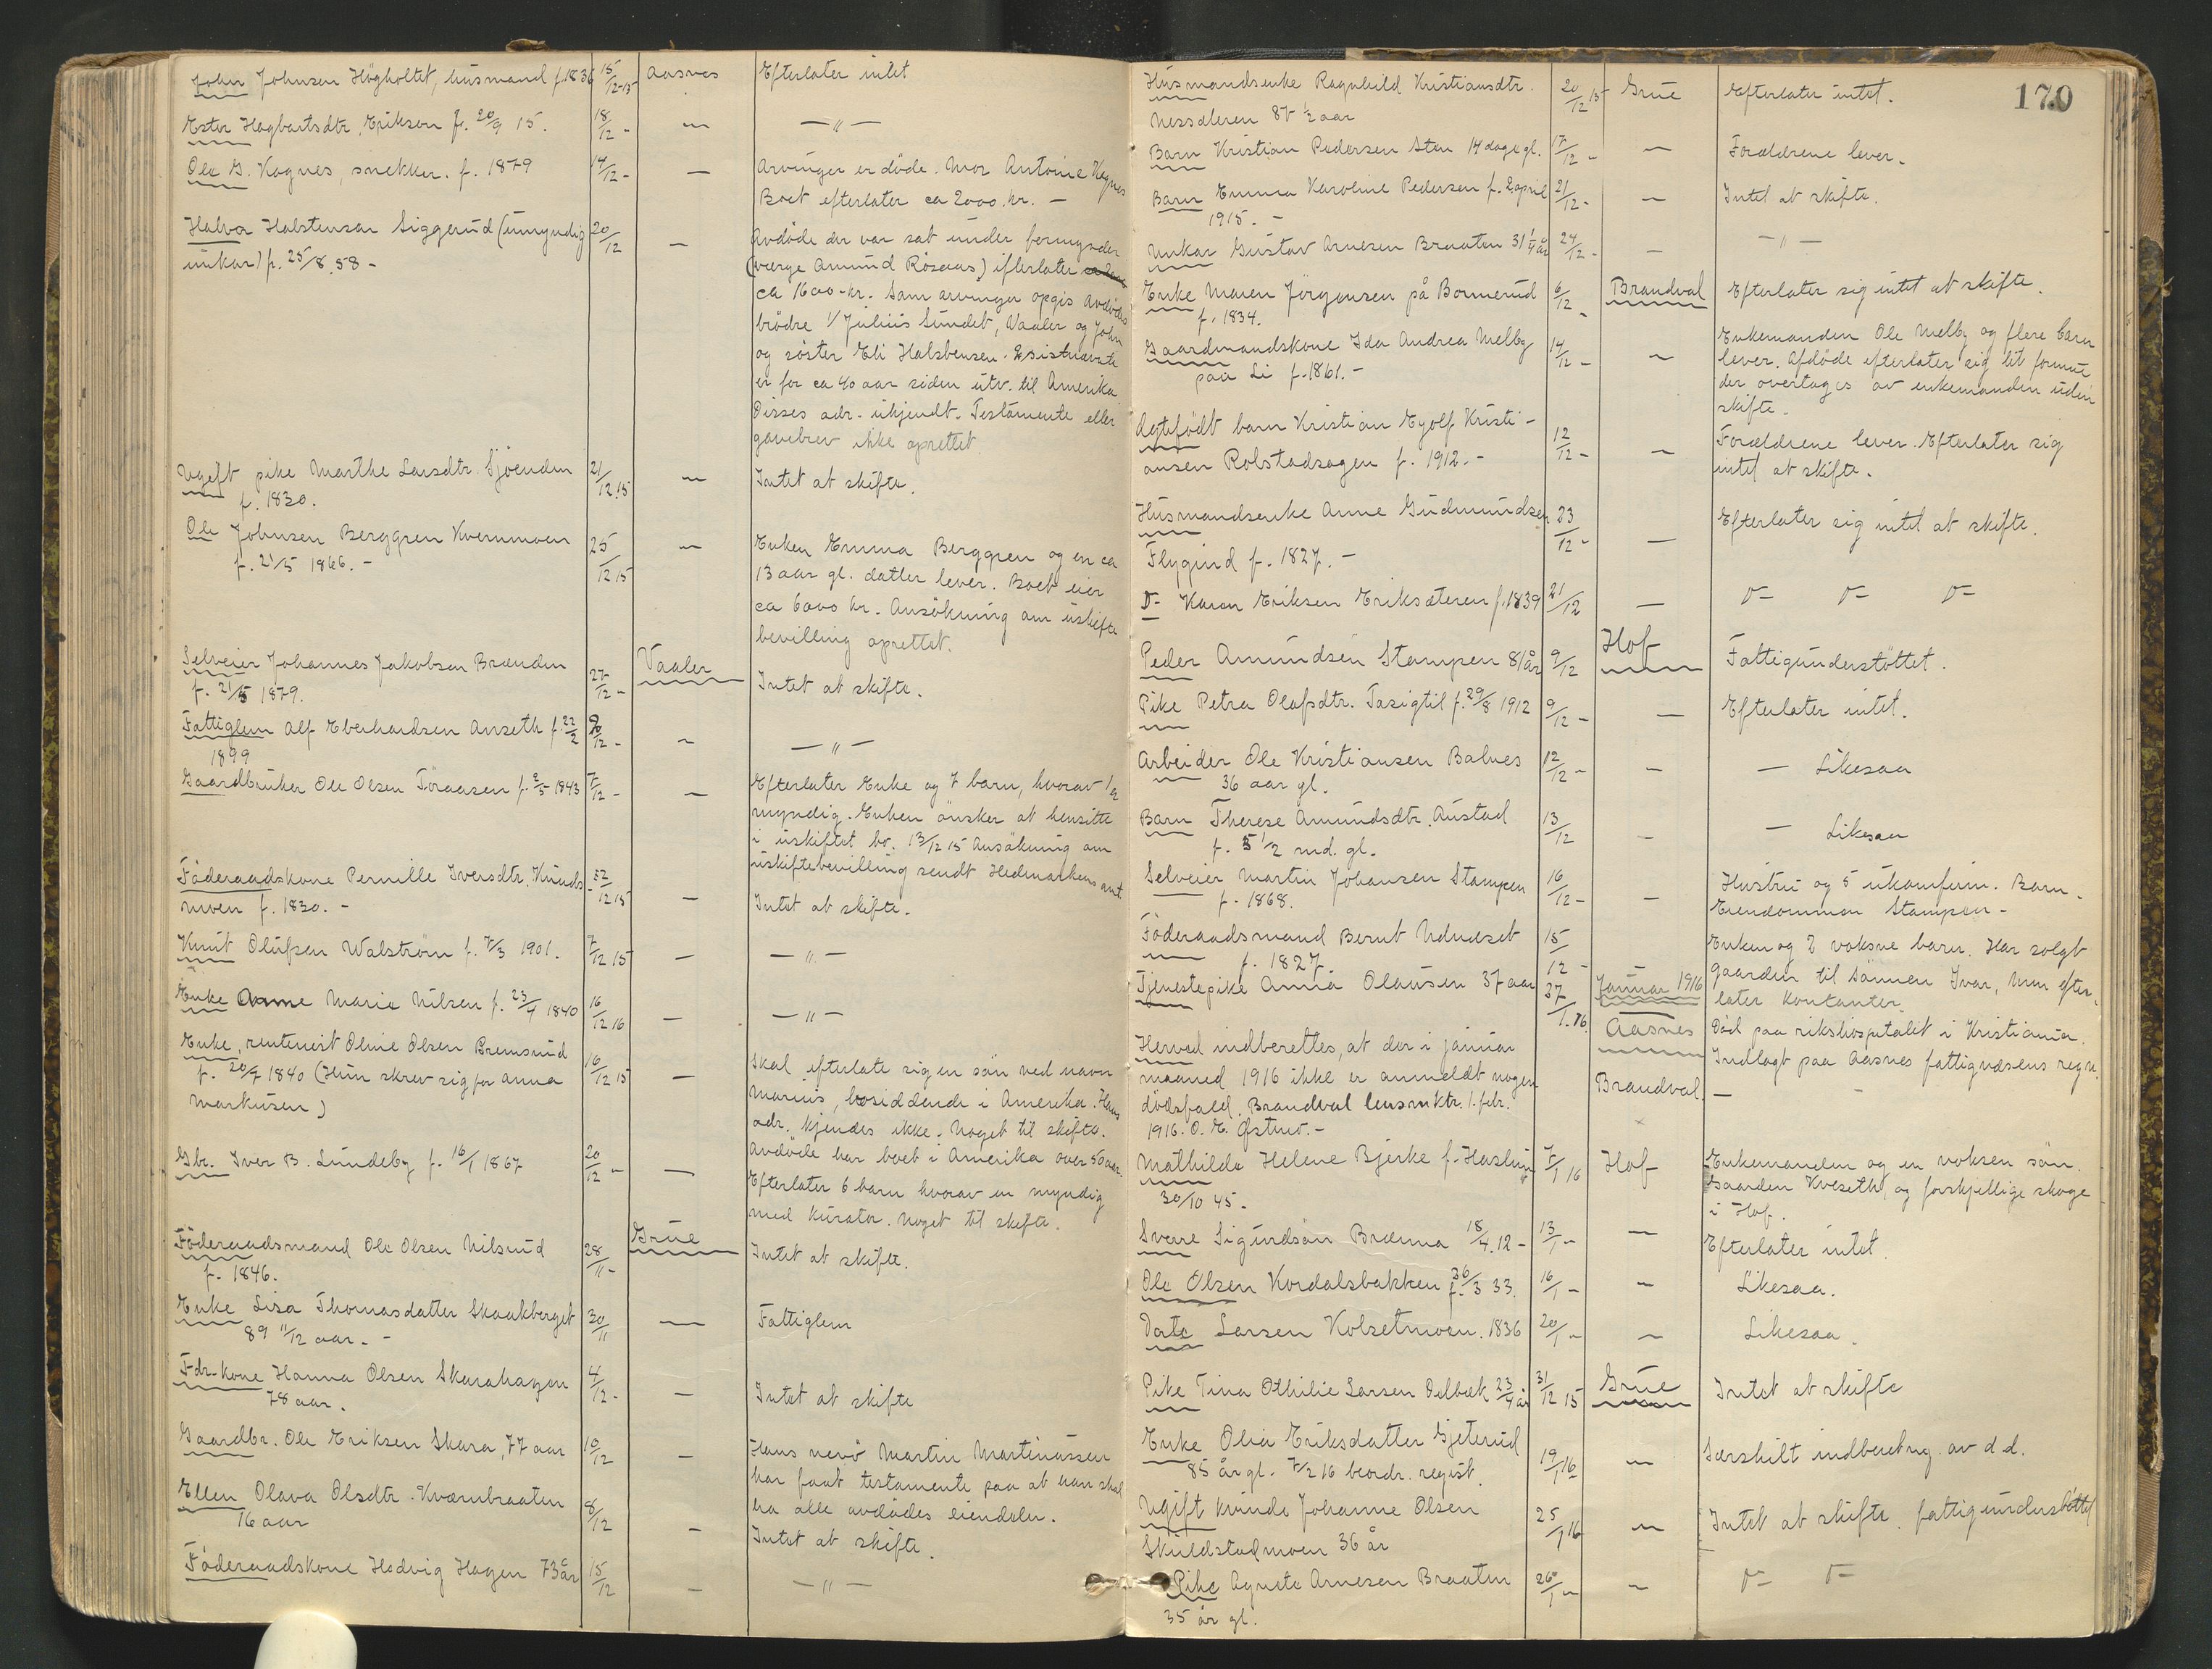 John Johnsen Högholtet, husmand f. 1836 15/12-15 Aasnes Efterlater intet
Ester Hagbartsdtr, Eriksen f. 20/9 15. 18/12 - — — " —
Ole G. Kognes, snekker. f. 1879 14/12 - — Arvinger er döde. Mor Antonie Kognes
Boet efterlater ca 2000. kr. —
Halvor Halstensen Siggerud (umyndig 20/12 — Avdöde der var sat under formynder
unkar) f. 25/8.58 - (verge Amund Rösaas) efterlater
ca 1600 - kr. Som arvinger opgis avdödes
brödre 1/ Julius Sundet, Vaaler og John
og söster Eli Halstensen. Sistnævnte
er for ca 40 aar siden utv. til Amerika
Disses adr. ukjendt. Testamente eller
gavebrev ikke oprettet.
Ugift pike Marthe Larsdtr. Sjöenden 21/12.15 — Intet at skifte.
f. 1830.
Ole Johnsen Berggren Kvernmoen 25/12 15 — Enken Emma Berggren og en ca
f. 21/5 1866. - 13 aar gl. datter lever. Boet eier
ca 6000 kr. Ansökning om uskifte
bevilling oprettet.
Selveier Johannes Jakobsen Brænden 27/12 - Vaaler Intet at skifte.
f. 21/5 1879.
Fattiglem Alf Eberhardsen Anseth f. 22/2 /12 - — — " —
1899
Gaardbruker Ole Olsen Töraasen f. 2/5 1843 7/12 - — Efterlater Enke og 7 barn, hvorav
myndig. Enken önsker at hensitte
i uskiftet bo. 13/12 15 Ansökning om
uskiftebevilling sendt Hedmarkens amt.
Föderaadskone Pernille Iversdtr. Knuds- /12 15 — Intet at skifte.
moen f. 1830. -
Knut Olufsen Walström f. 7/3 1901. 7/12 15 — — " —
Enke Anne Marie Nilsen f. 23/4 1840 16/12 16 — — " —
Enke, rentenist Oline Olsen Bremsrud 16/12 15 — Skal efterlate sig en sön ved navn
f. 20/7 1840 (Hun skrev sig for Anna Marius, bosiddende i Amerika. Hans
Markusen) adr. kjendes ikke. Noget til skifte.
Avdöde har boet i Amerika over 50 aar.
Gbr. Iver B. Lundeby f. 16/1 1867 20/12 - — Efterlater 6 barn hvorav en myndig
med kurator. Noget til skifte.
Föderaadsmand Ole Olsen Nilsrud 28/11 - Grue Intet at skifte.
f. 1846.
Enke Lisa Thomasdatter Skaakberget 30/11 — Fattiglem
89 11/12 aar. -
Fdr-kone Hanna Olsen Skarahagen 4/12 - — Intet at skifte
78 aar.
Gaardbr. Ole Eriksen Skara, 77 aar 10/12 — Hans nevö Martin Martinussen
har faat testamente paa at han skal
ha alle avdödes eiendeler.
Ellen Olava Olsdtr. Kværnbraaten 8/12 — Intet at skifte.
16 aar
Föderaadskone Hedvig Hagen 73 år 15/12 — — " —
170
Husmandsenke Ragnhild Kristiansdtr. 20/12 15 Grue Efterlater intet.
Nessæteren 87 1/2 aar
Barn Kristian Pedersen Sten 14 dage gl. 17/12 - — Forældrene lever.
Barn Emma Karoline Pedersen f. 2 april 21/12 - — Intet at skifte.
1915. -
Unkar Gustav Arnesen Braaten 31 1/4 år 24/12 - — — " —
Enke Maren Jörgensen på Bonnerud 6/12 - Brandval Efterlater sig intet at skifte.
f. 1834.
Gaardmandskone Ida Andrea Melby 14/12 - — Enkemanden Ole Melby og flere barn
paa Li f. 1861. - lever. Afdöde efterlater sig lit formue
der overtages av enkemanden uden
skifte.
Ægtefödt barn Kristian Eyolf Kristi- 12/12 - — Forældrene lever. Efterlater sig
ansen Rolstadsagen f. 1912. - intet at skifte.
Husmandsenke Anne Gudmundsen 23/12 - — Efterlater sig intet at skifte.
Flygind f. 1827. -
D- Karen Eriksen Eriksæteren f. 1839 21/12 — D- D- D-
Peder Amundsen Stampen 81 år 9/12 Hof Fattigunderstöttet.
Pike Petra Olafsdtr. Tasigtil f. 29/8 1912 9/12 - — Efterlater intet.
Arbeider Ole Kristiansen Balnes 12/12 - — — Likesaa
36 aar gl.
Barn Therese Amundsdtr. Austad 13/12 — — Likesaa
f. 5 1/2 md. gl.
Selveier Martin Johansen Stampen 16/12 - — Hustru og 5 ukonfirm. Barn.
f. 1868. Eiendommen Stampen -
Föderaadsmand Bernt Udnæset 15/12 - — Enken og 2 voksne barn. Har solgt
f. 1827. gaarden til sönnen Ivar, men efter-
later kontanter.
Tjenestepike Anna Olausen 37 aar 27/1.16. Januar 1916 Aasnes Död paa rikshospitalet i Kristiania.
Indlagt paa Aasnes fattigvæsens regn.
Herved indberettes, at der i januar
maaned 1916 ikke er anmeldt nogen Brandval —
dödsfald. Brandval lensmktr. 1. febr.
1916. O. E. Østmo. -
Mathilde Helene Bjerke f. Haslum 7/1 16 Hof Enkemanden og en voksen sön.
30/10 45. Gaarden Kveseth, og forskjellige skoge
i Hof.
Sverre Sigurdsön Brænna 18/4.12 - 13/1 - — Efterlater intet.
Ole Olsen Kordalsbakken f. 26/3 33. 16/1 - — Likesaa.
Dorte Larsen Kolsetmoen. 1836 20/1 - — Likesaa.
Pike Tina Othilie Larsen Delbæk 23/4 år 31/12 15 Grue Intet at skifte
Enke Olia Eriksdatter Gjeterud 19/1 16 — Særskilt indberetng. av d.d.
85 år gl. 7/2 16 beordr. regist.
Ugift kvinde Johanne Olsen 25/1 16 — Intet at skifte. fattigunderstöttet
Skuldstadmoen 36 år
Pike Agnete Arnesen Braaten 26/1 - — D- D-
35 år gl.